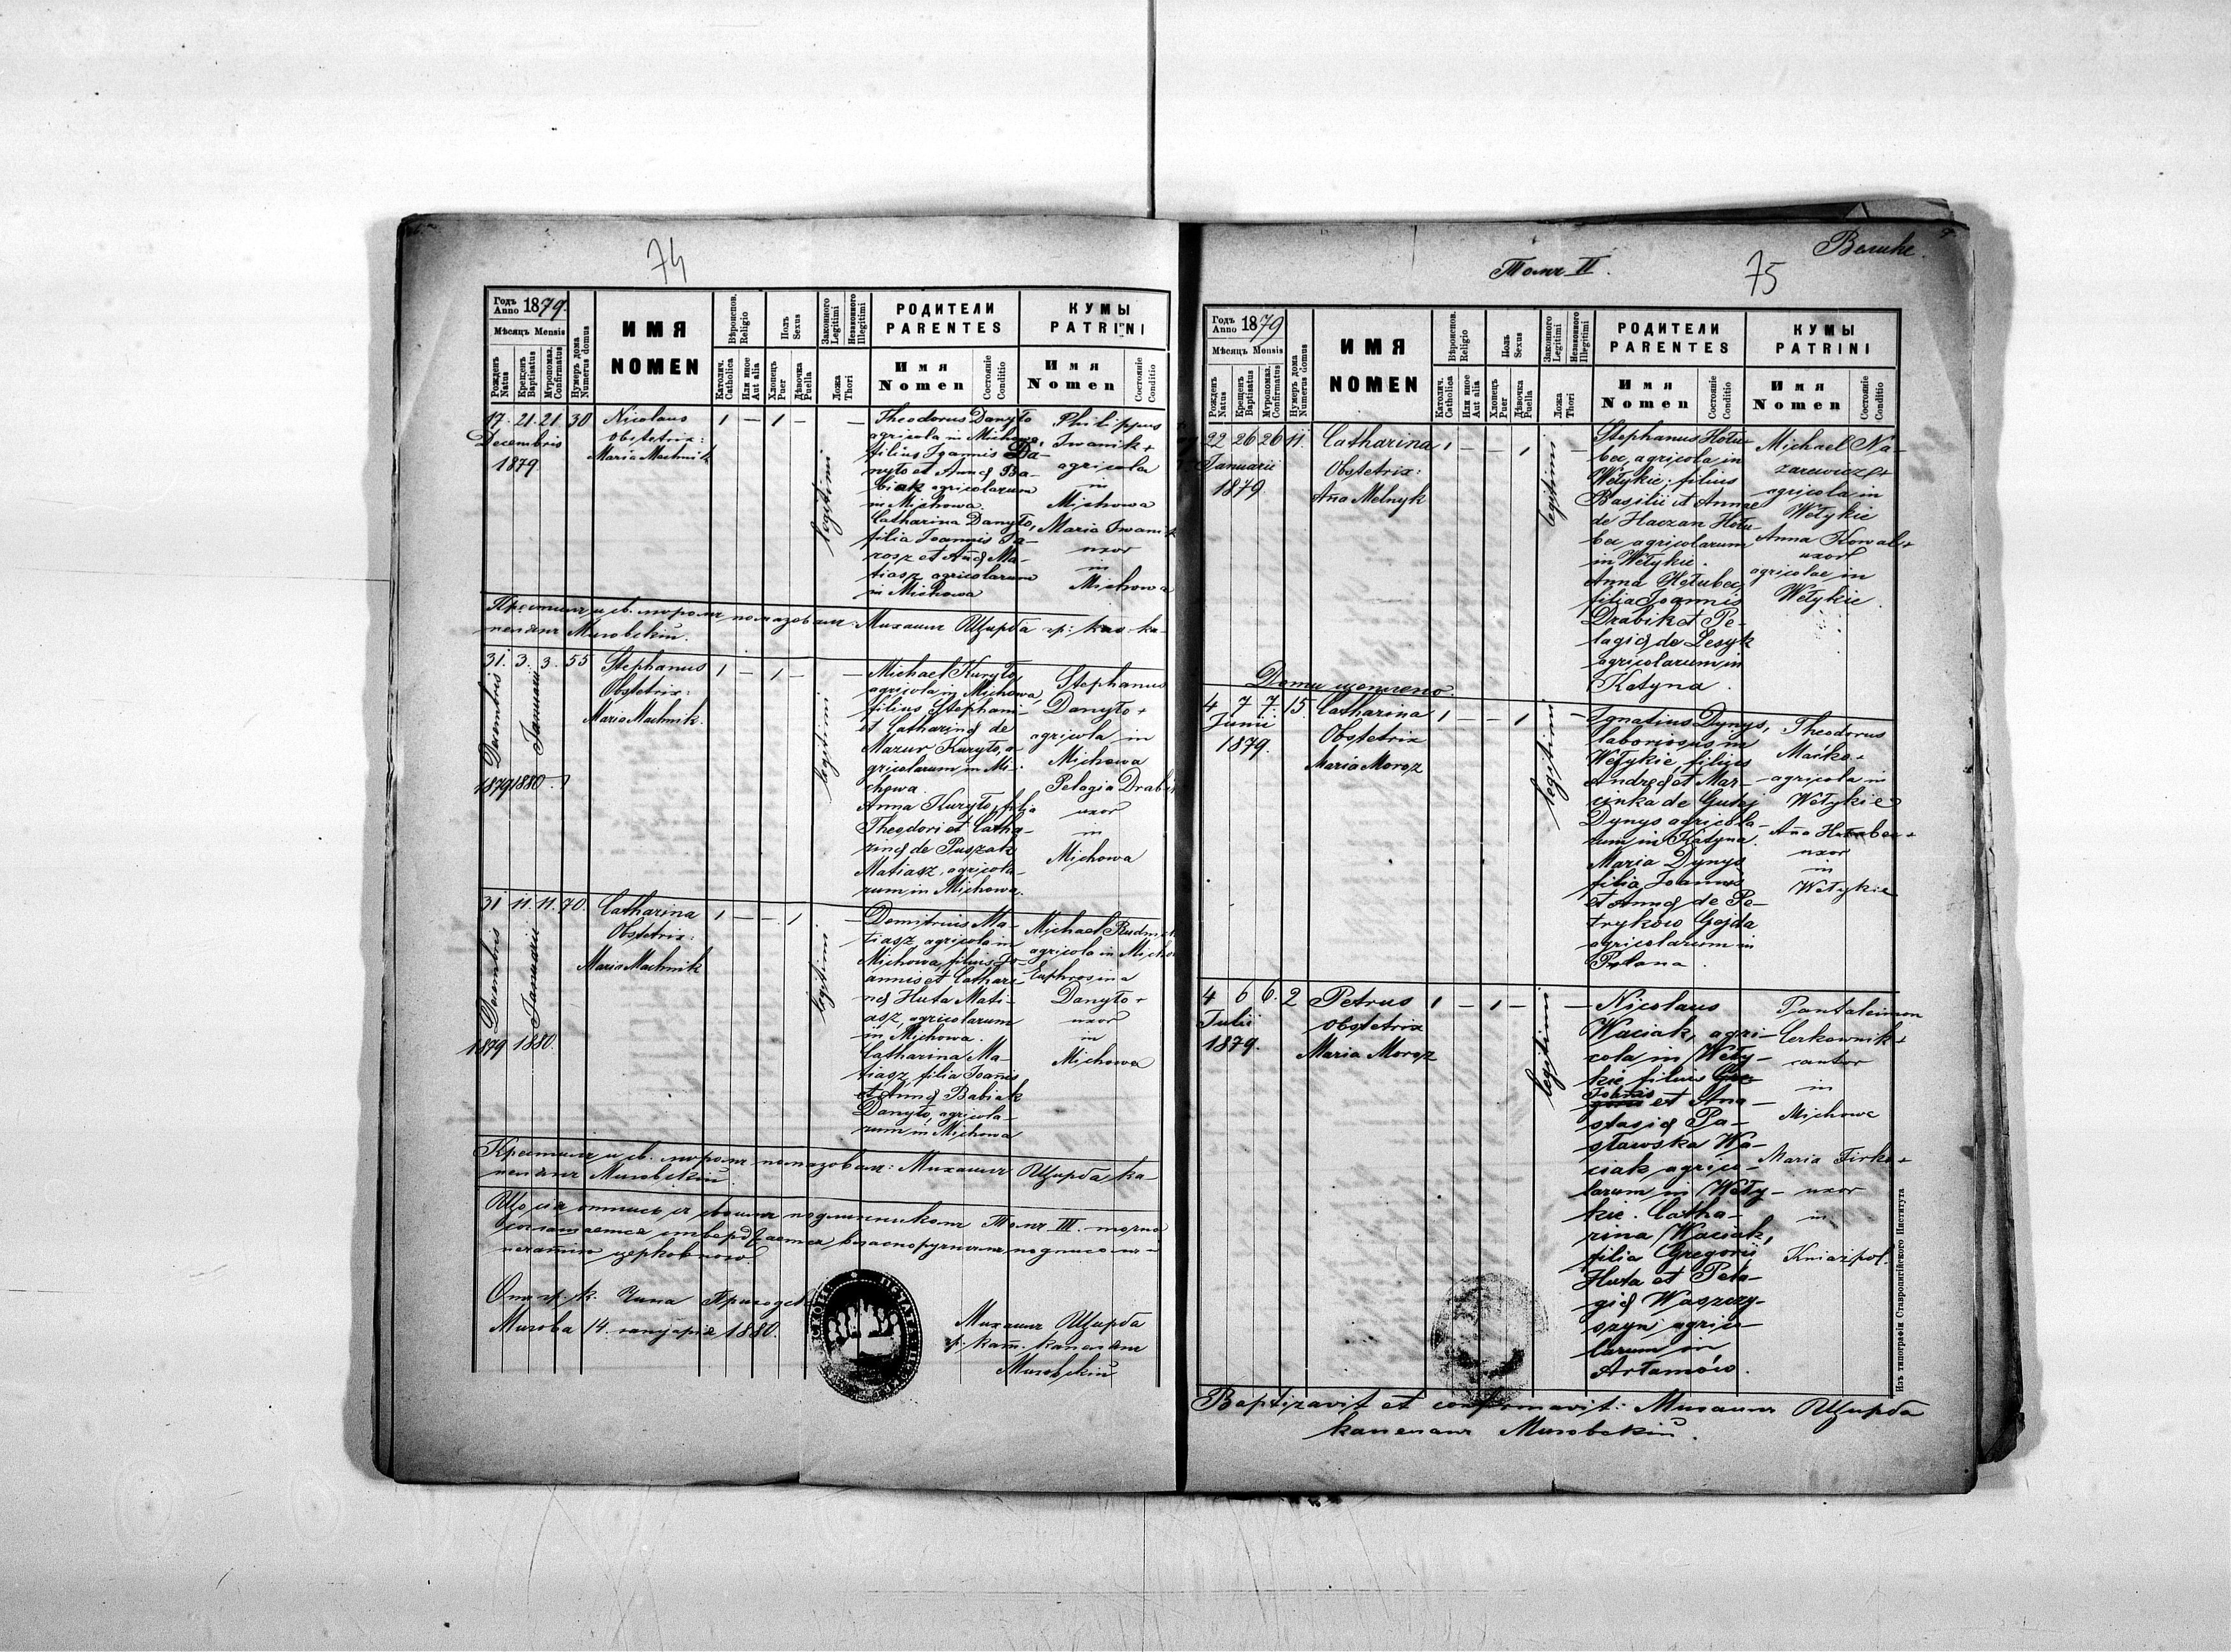 74
Годъ Anno 1879.
Мѣсяцъ Mensis
Рожденъ Natus
Крещенъ Baptisatus
Мѵропомаз. Confirmatus
Нумеръ дома Numerus domus
ИМЯ
NOMEN
Вѣроиспов. Religio
Католич. Catholica
Или иное Aut alia
Полъ Sexus
Хлопецъ Puer
Дѣвочка Puella
Законного Legitimi
Незаконного Illegitimi
Ложа Thori
РОДИТЕЛИ
PARENTES
Имя Nomen
Состоянiе Conditio
КУМЫ
PATRINI
Имя Nomen
Состоянiе Conditio
17. 21. 21. 30
Decembris
1879.
Nicolaus
obstetrix:
Maria Machnik
1 — 1 —
legitimi
Theodorus Danyło
agricola in Michowa,
filius Joannis Da-
nyło et Annę Ba-
biak agricolarum
in Michowa.
Catharina Danyło,
filia Joannis Ja-
rosz et Annę Ma-
tiasz agricolarum
in Michowa
Philippus
Iwanik +
agricola
in
Michowa
Maria Iwanik
uxor
in
Michowa
Крестилъ и св. мѵромъ помазовалъ: Михаилъ Щирба гр: као ка-
пеланъ Миховскiй.
31. 3. 3. 55
Decembris Januarii
1879 1880.
Stephanus
Obstetrix:
Maria Machnik.
1 — 1 —
legitimi
Michael Kuryło,
agricola in Michowa,
filius Stephani
et Catharinę de
Mazur Kuryło, a-
gricolarum in Mi-
chowa.
Anna Kuryło, filia
Theodori et Catha-
rinę de Puszak
Matiasz, agricola-
rum in Michowa.
Stephanus
Danyło +
agricola in
Michowa
Pelagia Drab
uxor
in
Michowa
31 11. 11. 70.
Decembris Januarii
1879 1880.
Catharina
Obstetrix:
Maria Machnik
1 — — 1
legitimi
Demitrius Ma-
tiasz, agricola in
Michowa, filius Jo-
annis et Cathari-
nę Huta Mati-
asz, agricolarum
in Michowa.
Catharina Ma-
tiasz, filia Joañis
et Annę Babiak
Danyło, agricola-
rum in Michowa
Michael
agricola in
Euphrosina
Danyło +
uxor
in
Michowa
Крестилъ и св. мѵромъ помазовалъ: Михаилъ Щирба, ка-
пеланъ Миховскiй.
Що сiя отпись съ своимъ подлинникомъ Томъ III. точно
соглашается стверджается власноручнымъ подписомъ и
печатiю церковною.
Отъ гр. к. Чина Приход.
Михова 14. януарiя 1880.
Михаилъ Щирба
гр. кат. капеланъ
Миховскiй
Томъ II.
75
Велике.
Годъ Anno 1879
Мѣсяцъ Mensis
Рожденъ Natus
Крещенъ Baptisatus
Мѵропомаз. Confirmatus
Нумеръ дома Numerus domus
ИМЯ
NOMEN
Вѣроиспов. Religio
Католич. Catholica
Или иное Aut alia
Полъ Sexus
Хлопецъ Puer
Дѣвочка Puella
Законного Legitimi
Незаконного Illegitimi
Ложа Thori
РОДИТЕЛИ
PARENTES
Имя Nomen
Состоянiе Conditio
КУМЫ
PATRINI
Имя Nomen
Состоянiе Conditio
22 26 26 11.
Januarii
1879.
Catharina
Obstetrix:
Aña Melnyk
1 — — 1
legitimi
Stephanus Hołu-
bec, agricola in
Wełykie; filius
Basilii et Annae
de Haczan Hołu-
bec agricolarum
in Wełykie.
Anna Hołubec,
filia Joannis
Drabik et Pe-
lagię de Lesyk
agricolarum in
Katyna.
Michael Na-
zarewicz +
agricola in
Wełykie
Anna Kowal +
uxor
agricolae in
Wełykie.
4 7 7. 15.
Junii
1879.
Catharina
Obstetrix
Maria Moroz
1 — — 1
legitimi
Ignatius Dynys,
laboriosus in
Wełykie, filius
Andreę et Mar-
cinka de Gutej
Dynys agricola-
rum in Katyna.
Maria Dynys
filia Joannis
et Annę de Pe-
tryków Gojda
agricolarum in
Polana.
Theodorus
Maćko +
agricola in
Wełykie
Aña Hołubec +
uxor
in
Wełykie
4 6 6. 2
Julii
1879.
Petrus
obstetrix
Maria Moroz
1 — 1 —
legitimi
Nicolaus
Waciak, agri-
cola in Weły-
kie filius Gre-
Joannis
gorii et Ana-
stasię Pa-
sławska Wa-
ciak agrico-
larum in Weły-
kie. Catha-
rina Waciak,
filia Gregorii
Huta et Pela-
gię Waszczy-
szyn agrico-
larum in
Artamów.
Pantaleimon
Cerkownik +
cantor
in
Michowe
Maria Firko +
uxor
in
Kniażpol.
Baptizavit et confirmavit: Михаилъ Щирба
капеланъ Миховскiй.
Изъ типографiи Ставропигiйского Института